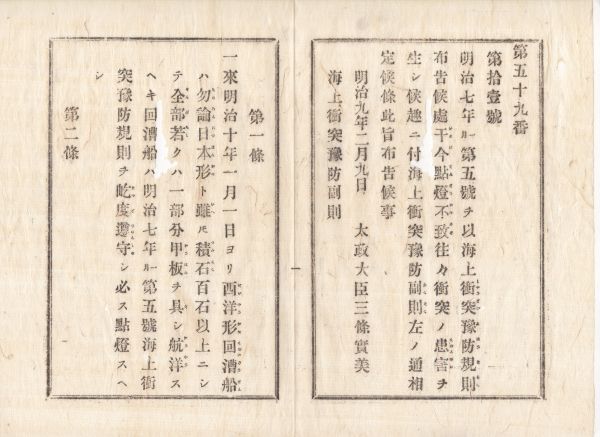 第五十九番
第拾壹號
明治七年一月第五號ヲ以海上衝突豫防規則
布告候處于今點燈不致往々衝突ノ患害ヲ
生シ候趣ニ付海上衝突豫防副則左ノ通相
定候條此旨布告候事
明治九年二月九日　太政大臣三條實美
海上衝突豫防副則
第一條
一來明治十年一月一日ヨリ西洋形回漕船
ハ勿論日本形ト雖モ積石百石以上ニシ
テ全部若クハ一部分甲板ヲ具シ航洋ス
ヘキ回漕船ハ明治七年一月第五號海上衝
突豫防規則ヲ屹度遵守シ必ス點燈スヘ
シ
第二條